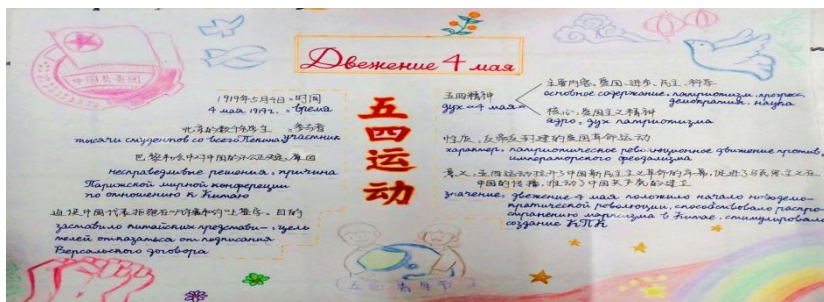 Двежение 4 мая
五四运动
中国共青团
1919年5月4日 时间
4 мая 1919г. время
北京的数千学生 参与者
тысячи студентов со всего Пекина участник
巴黎和会中对中国的不公正决定 原因
несправедливые решения, причина
Парижской мирной конференции
по отношению к Китаю
迫使中国代表拒绝在 目的
заставило китайских представи- цель
телей отказаться от подписания
Версальского договора
五四精神
дух "4 мая"
主要内容:爱国、进步、民主、科学
основное содержание: патриотизм, прогресс,
демократия, наука
核心:爱国主义精神
ядро: дух патриотизма
性质:反帝反封建的爱国革命运动
характер: патриотическое революционное движение против
императорского феодализма
意义:五四运动拉开了中国新民主主义革命的序幕,促进了马克思主义在
中国的传播,推动了中国共产党的建立
значение: движение 4 мая положило начало новодемо-
кратической революции, способствовало распро-
странению марксизма в Китае, стимулировало
создание КПК
五四青年节